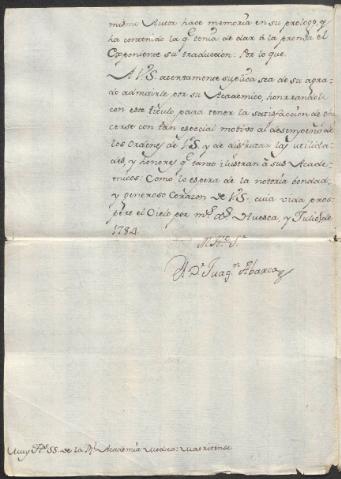 mismo Autor hace memoria en su prologo, y
ha contenido la qe. tenia de dar á la prensa el
Exponente su traduccion. Por lo que
A V.S. atentamente suplica sea de su agra-
do admitirle por su Académico, honrandole
con este título para tener la satisfaccion de
cerse con tan especial motivo al desempeño de
los Ordenes de V.S. y de disfrutar las utilida-
des, y honores qe. tanto ilustran á sus Acade-
micos: Como lo espera de la notoria bondad,
y generoso Corazon de V.S. cuia vida pros-
pere el Cielo por ms. as. Huesca, y Julio de
1784.
Dn. Juaqn. Abarca
Muy Ille. SS. de la Rl. Academia Medica: Matritense